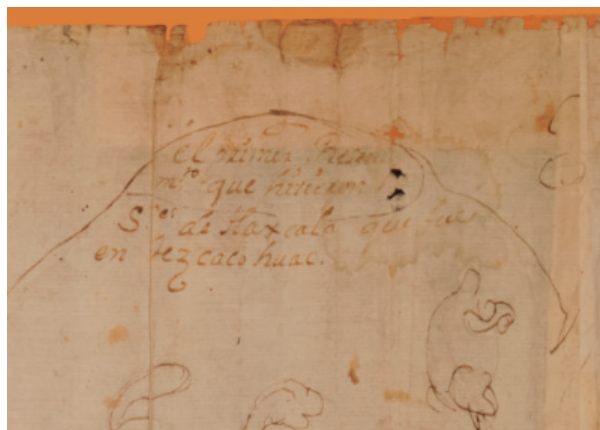 el primer
m.to que hicieron
S.res de tlaxcala que fue
en tezcacohuac.